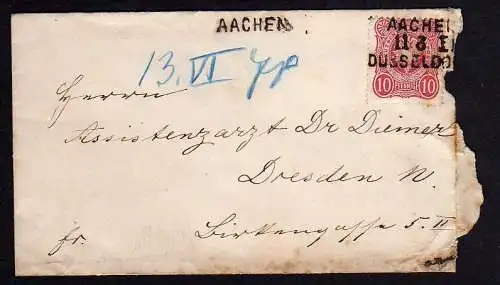 AACHEN
AACHEN
11 6 I
DÜSSELDO
10 PFENNIG 10
13. VI 78
Herrn
Assistenzarzt Dr Diemer
Dresden N.
fr.
Birkengasse 5. II